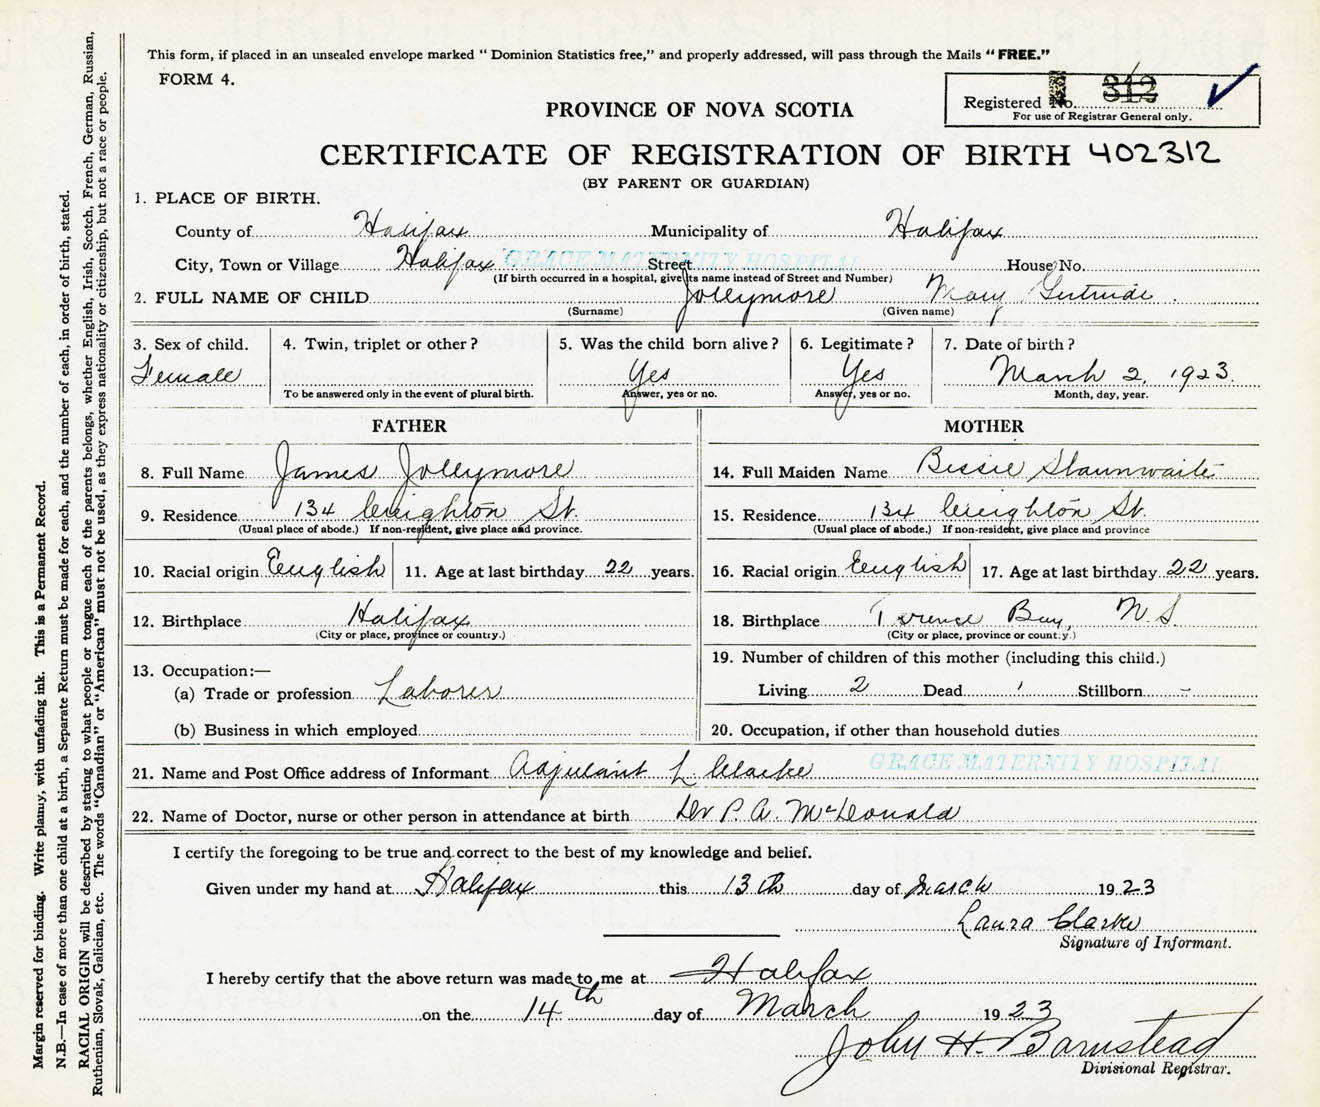 This form, if placed in an unsealed envelope marked “ Dominion Statistics free,” and properly addressed, will pass through the Mails “ FREE.”
FORM 4.
Registered No. 312
For use of Registrar General only.
PROVINCE OF NOVA SCOTIA
CERTIFICATE OF REGISTRATION OF BIRTH 402312
(BY PARENT OR GUARDIAN)
1. PLACE OF BIRTH.
County of Halifax Municipality of Halifax
City, Town or Village Halifax GRACE MATERNITY HOSPITAL Street House No.
(If birth occurred in a hospital, give its name instead of Street and Number)
2. FULL NAME OF CHILD Jollymore Mary Gertrude
(Surname) (Given name)
3. Sex of child. 4. Twin, triplet or other ? 5. Was the child born alive ? 6. Legitimate ? 7. Date of birth ?
Female Yes Yes March 2, 1923.
To be answered only in the event of plural birth. Answer, yes or no. Answer, yes or no. Month, day, year.
FATHER MOTHER
8. Full Name James Jollymore 14. Full Maiden Name Bessie Slaunwaite
9. Residence 134 Creighton St. 15. Residence 134 Creighton St.
(Usual place of abode.) If non-resident, give place and province. (Usual place of abode.) If non-resident, give place and province
10. Racial origin English 11. Age at last birthday 22 years. 16. Racial origin English 17. Age at last birthday 22 years.
12. Birthplace Halifax 18. Birthplace Terence Bay, N.S
(City or place, province or country.) (City or place, province or country.)
13. Occupation:— 19. Number of children of this mother (including this child.)
(a) Trade or profession Laborer Living 2 Dead Stillborn –
(b) Business in which employed 20. Occupation, if other than household duties
21. Name and Post Office address of Informant Adjutant L. Clarke GRACE MATERNITY HOSPITAL
22. Name of Doctor, nurse or other person in attendance at birth Dr P. A. McDonald
I certify the foregoing to be true and correct to the best of my knowledge and belief.
Given under my hand at Halifax this 13th day of March 1923
Laura Clarke
Signature of Informant.
I hereby certify that the above return was made to me at Halifax
on the 14th day of March 1923
John H. Barnstead
Divisional Registrar.
Margin reserved for binding. Write plainly, with unfading ink. This is a Permanent Record.
N.B.—In case of more than one child at a birth, a Separate Return must be made for each, and the number of each, in order of birth, stated.
RACIAL ORIGIN will be described by stating to what people or tongue each of the parents belongs, whether English, Irish, Scotch, French, German, Russian,
Ruthenian, Slovak, Galician, etc. The words “Canadian” or “American” must not be used, as they express nationality or citizenship, but not a race or people.